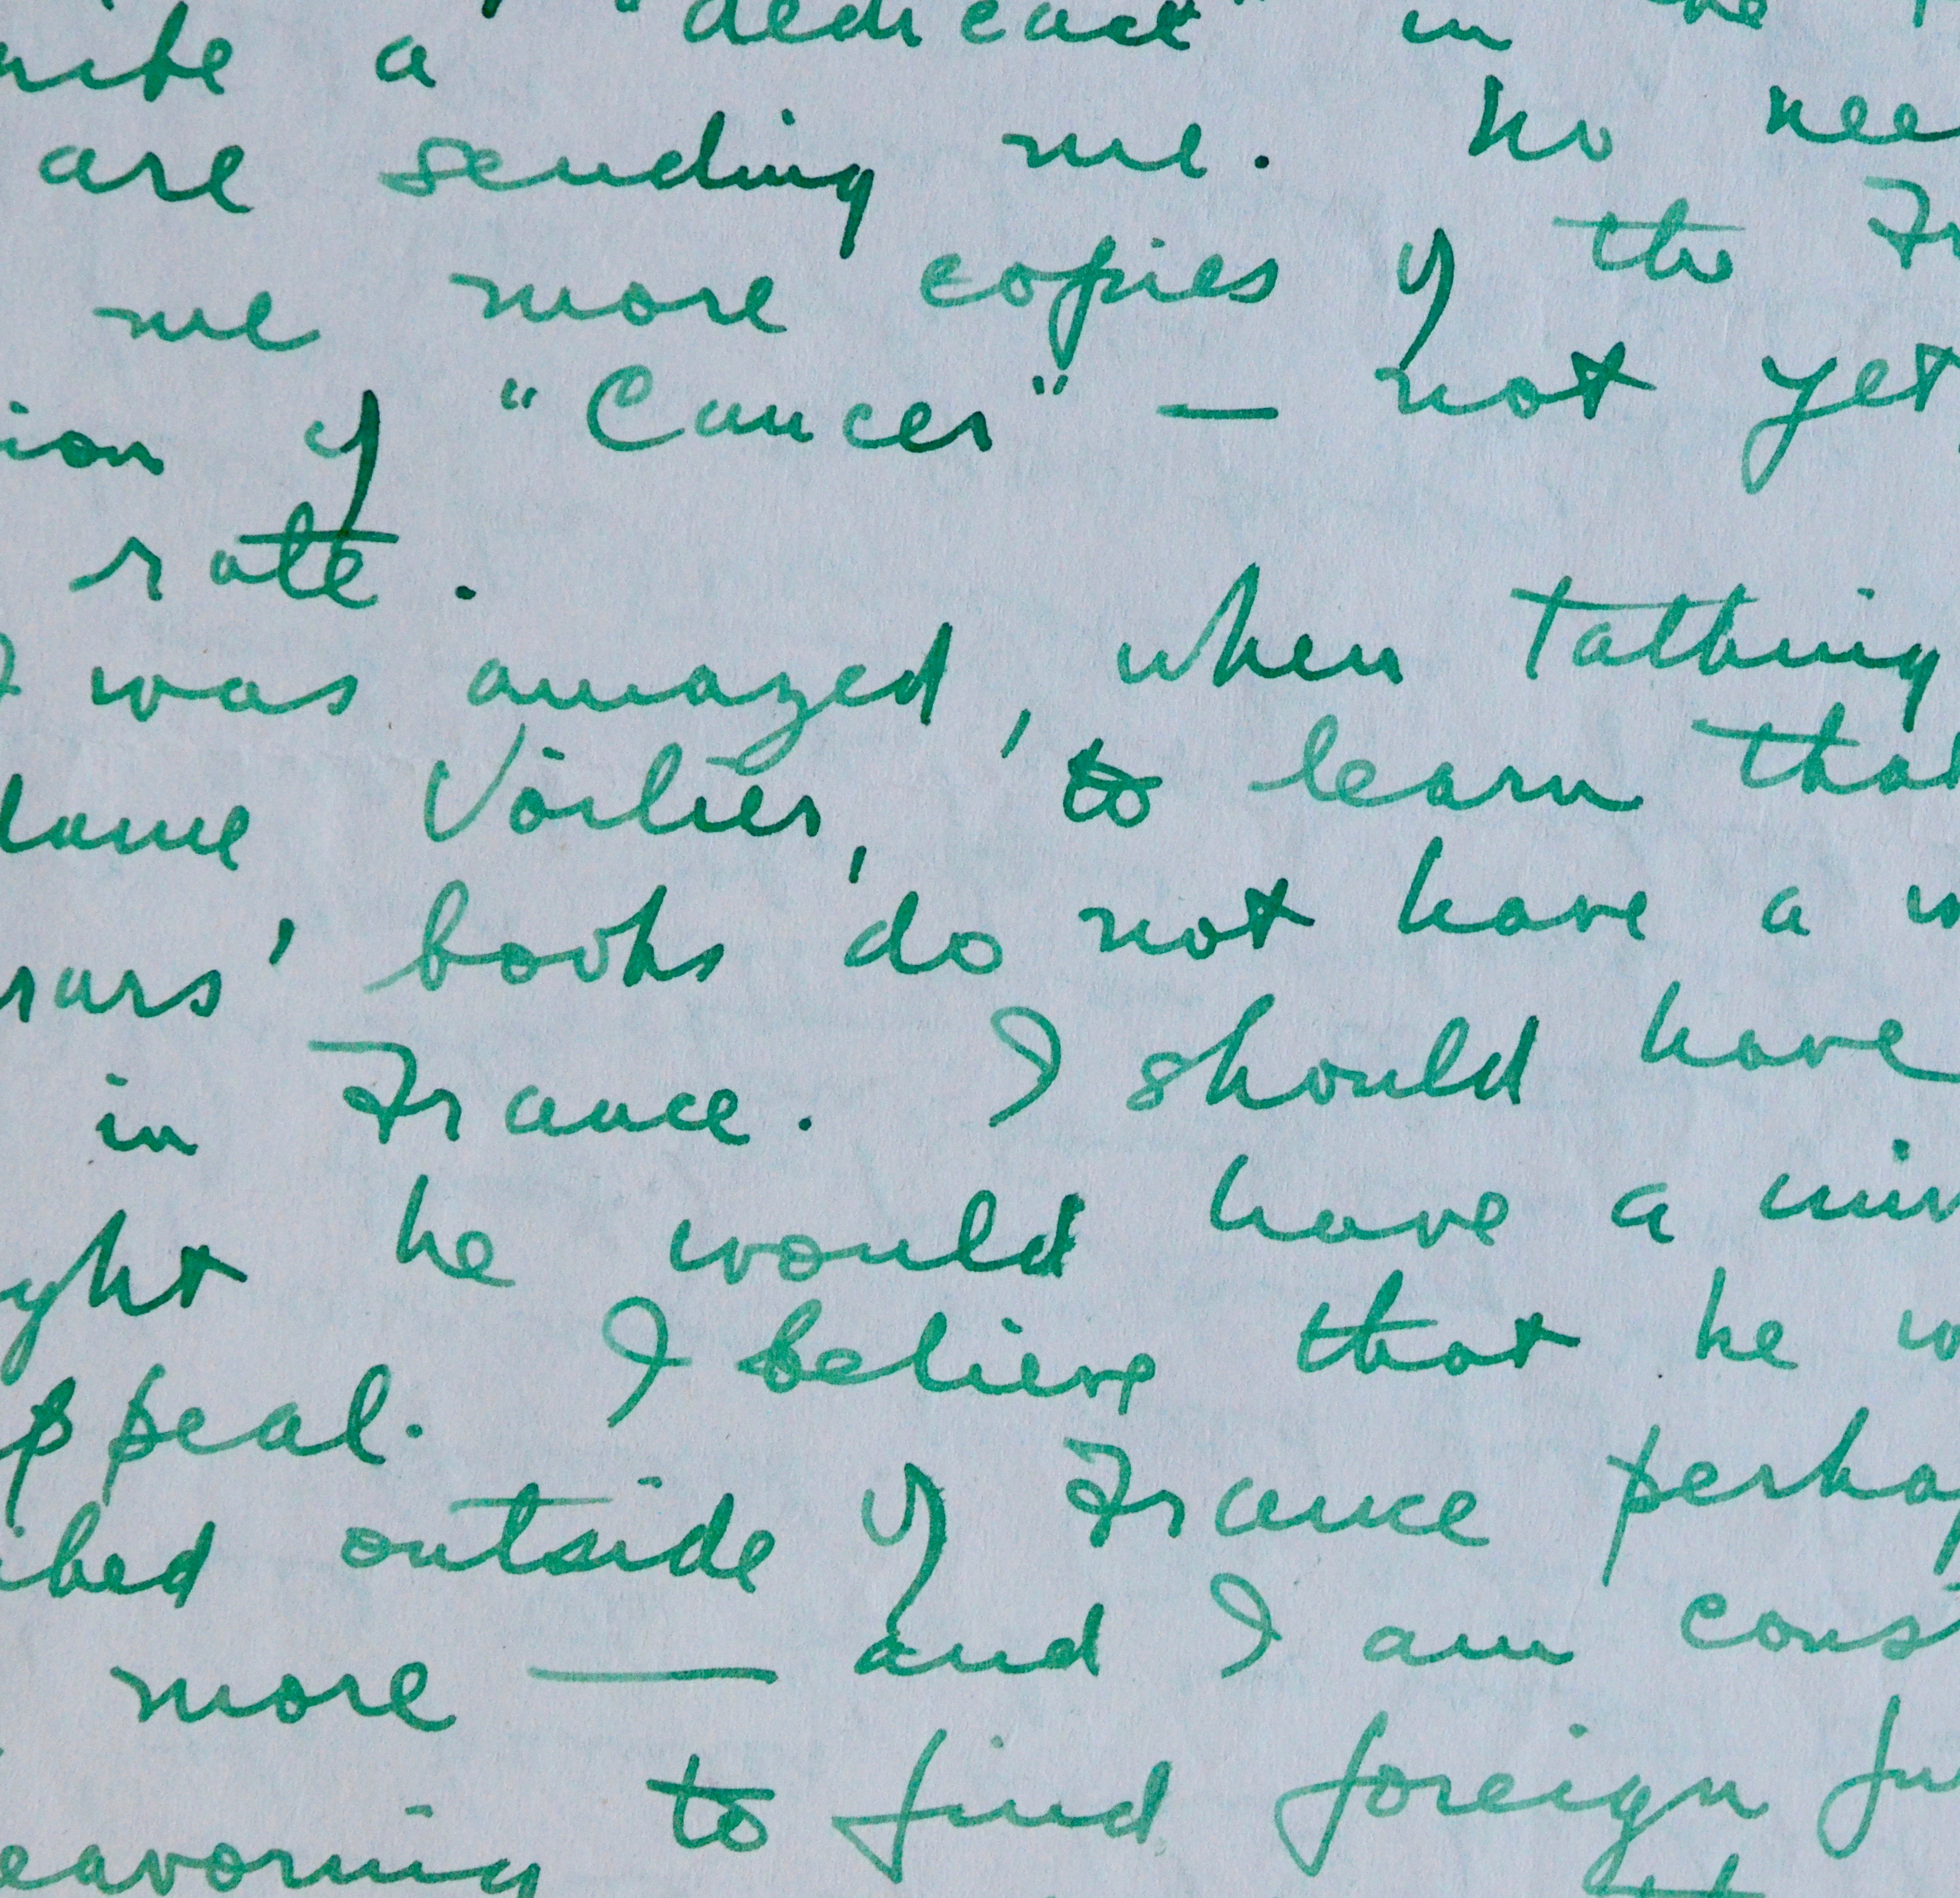 a "dedicace" in the
are sending me. No nee
me more copies of the Fr
ion of "Cancer" — not yet,
rate.
I was amazed, when talking
dame Voilier, to learn that
rars' books do not have a w
in France. I should have
ught he would have a univ
ppeal. I believe that he w
ibed outside of France perhap
more — and I am const
eavoring to find foreign pu